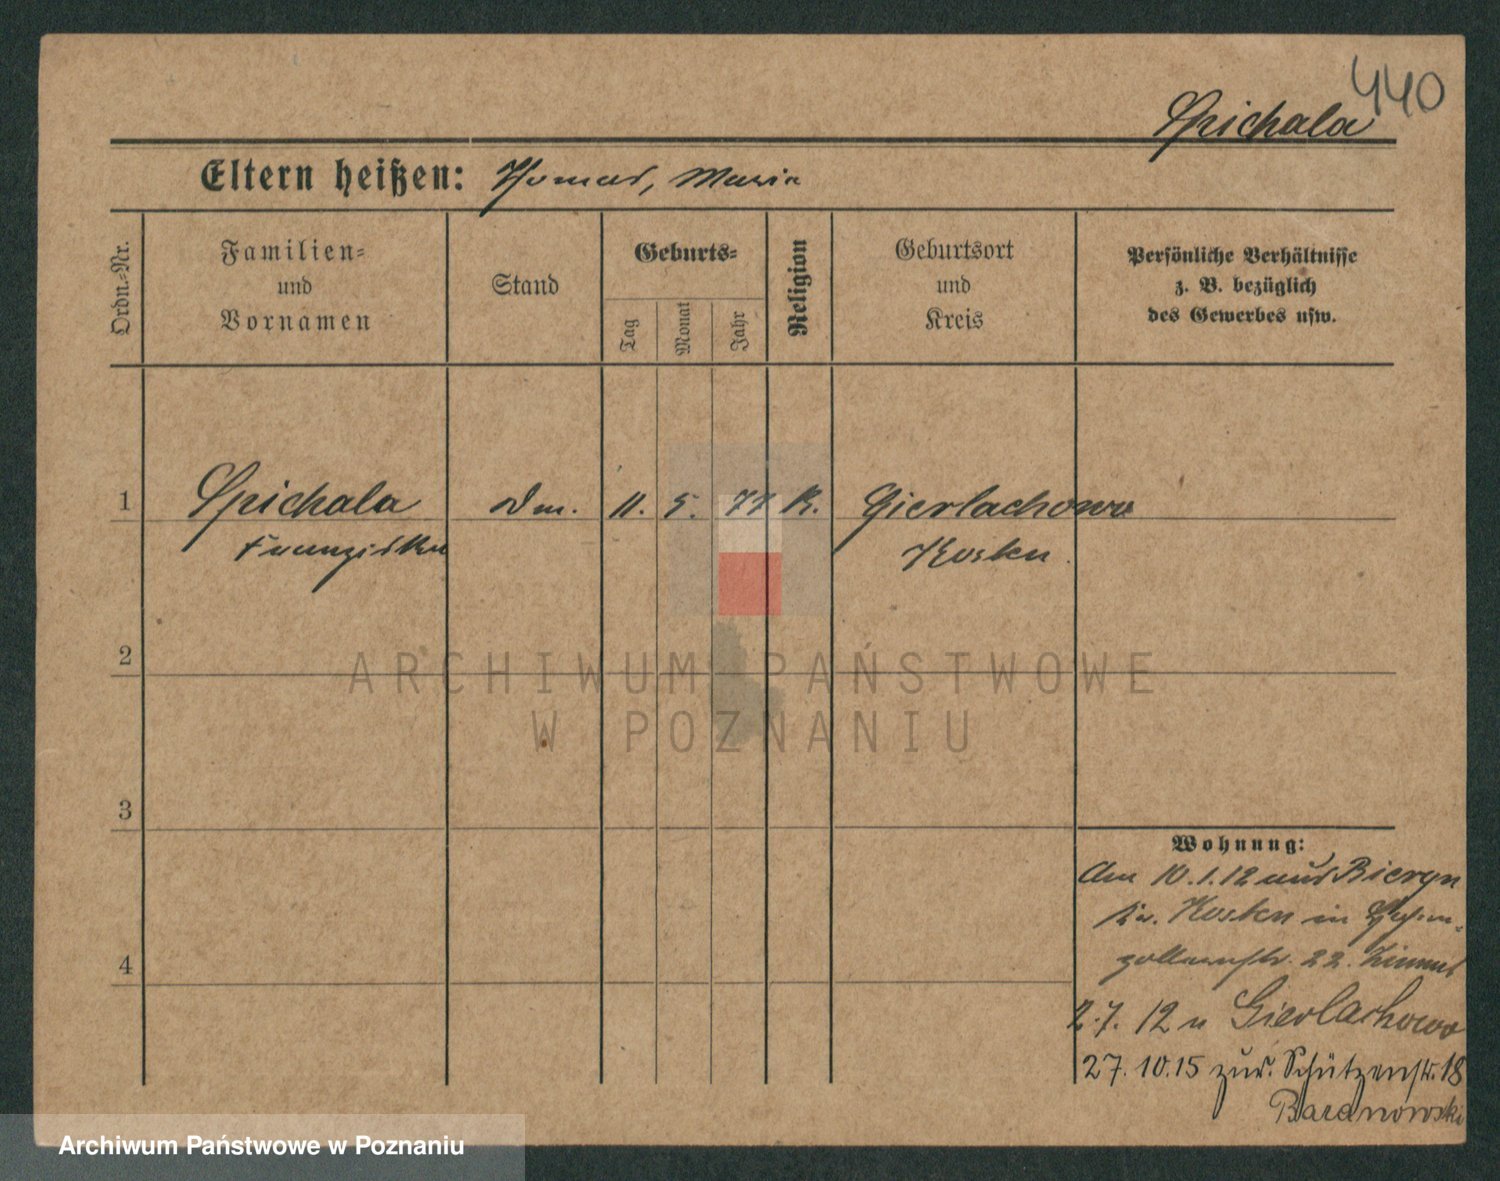 440
Spichala
Eltern heißen: Thomas, Maria
Ordn.-Nr.
Familien-
und
Vornamen
Stand
Geburts-
Tag
Monat
Jahr
Religion
Geburtsort
und
Kreis
Persönliche Verhältnisse
z. B. bezüglich
des Gewerbes usw.
1 Spichala Dm. 11. 5. 77 K. Gierlachowo
Franziska Kosten.
2
ARCHIWUM PAŃSTWOWE
W POZNANIU
3
Wohnung:
Am 10.1.12 aus Bieryn
Kr. Kosten in Hohen-
4
zollernstr. 22.
2.7.12 n Gierlachowo
27.10.15 zur. Schützenstr. 18
Baranowski
Archiwum Państwowe w Poznaniu